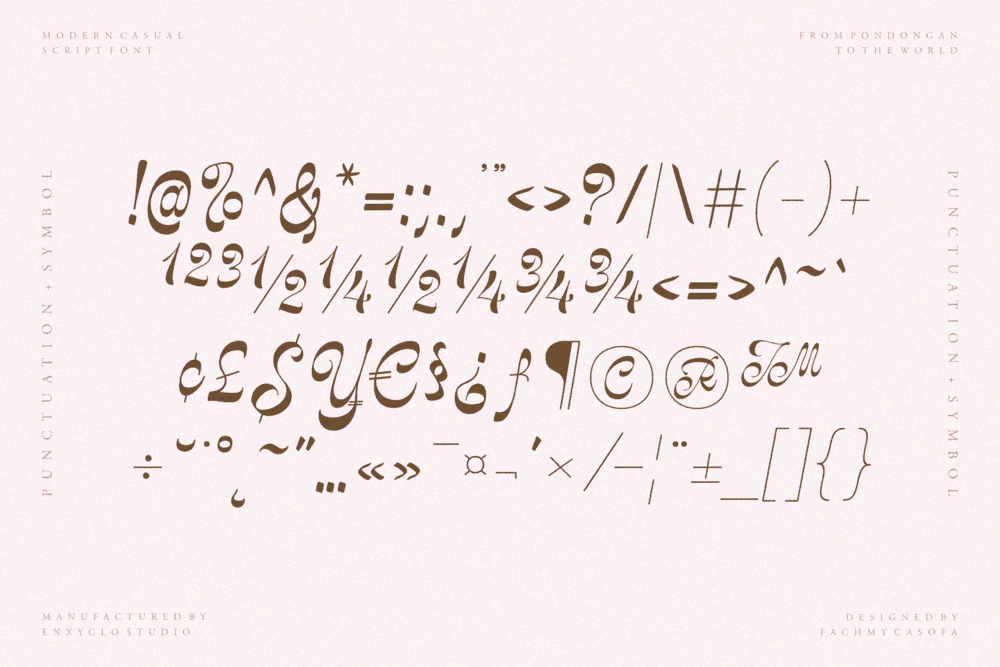 MODERN CASUAL
SCRIPT FONT
FROM PONDONGAN
TO THE WORLD
PUNCTUATION + SYMBOL
!@%^&*=:;.,'"<>?/|\#(-)+
¹²³½¼½¼¾¾<=>^~`
¢£$¥€§¿ƒ¶©®™
÷˘˙˚˛~˝…«»¯¤¬´×⁄−¦¨±_[]{}
PUNCTUATION + SYMBOL
MANUFACTURED BY
ENXYCLO STUDIO
DESIGNED BY
FACHMY CASOFA